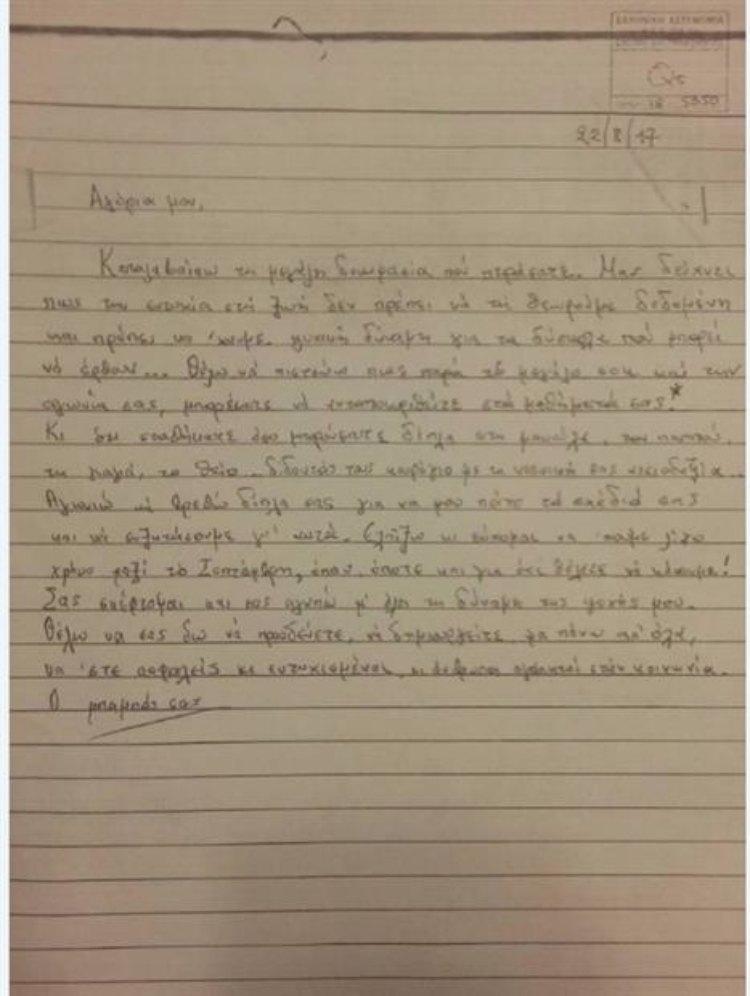 ΕΛΛΗΝΙΚΗ ΑΣΤΥΝΟΜΙΑ
22/8/17
Αγόρια μου,
Καταλαβαίνω τη μεγάλη δοκιμασία που περάσατε. Μας δείχνει
πως την ευτυχία στη ζωή δεν πρέπει να τη θεωρούμε δεδομένη
και πρέπει να 'χουμε ψυχική δύναμη για τα δύσκολα που μπορεί
νά έρθουν... Θέλω νά πιστεύω πως παρά τό μεγάλο σοκ και την
αγωνία σας, μπορέσατε νά ανταποκριθείτε στά μαθήματά σας.*
Κι ότι σταθήκατε όσο μπορούσατε δίπλα στη μανούλα, τον παππού,
τη γιαγιά, το θείο... δίδοντάς τους κουράγιο με τη νεανική σας αισιοδοξία...
Αγωνιώ νά βρεθώ δίπλα σας για να μου πείτε τά σχέδιά σας
και νά συζητήσουμε γι' αυτά. Ελπίζω κι εύχομαι να 'χουμε λίγο
χρόνο μαζί το Σεπτέμβρη, όπου, όποτε και για ότι θέλετε νά κάνουμε!
Σας σκέφτομαι και σας αγαπώ μ' όλη τη δύναμη της ψυχής μου.
Θέλω να σας δω νά προοδεύετε, νά δημιουργείτε μα πάνω απ' όλα,
να 'στε ασφαλείς κι ευτυχισμένοι, κι άνθρωποι στην κοινωνία.
Ο μπαμπάς σας